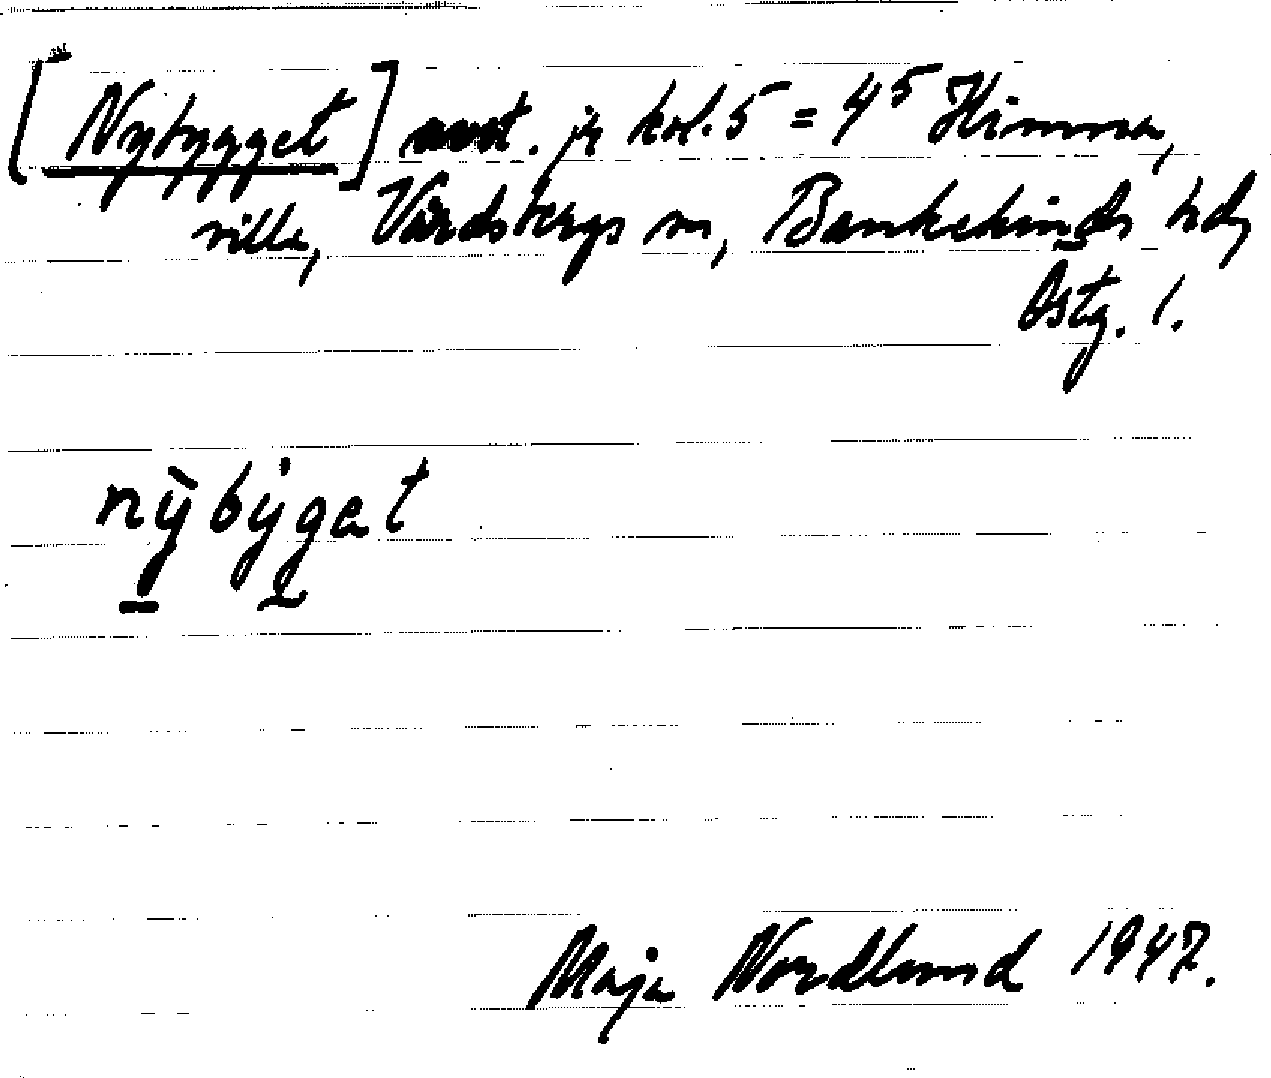 [Nybygget] avst. jr kol. 5 = 4⁵ Himna,
ville, Vårdsbergs sn, Bankekinds hd,
Östg. l.
nỳbýget
Maja Nordlund 1947.